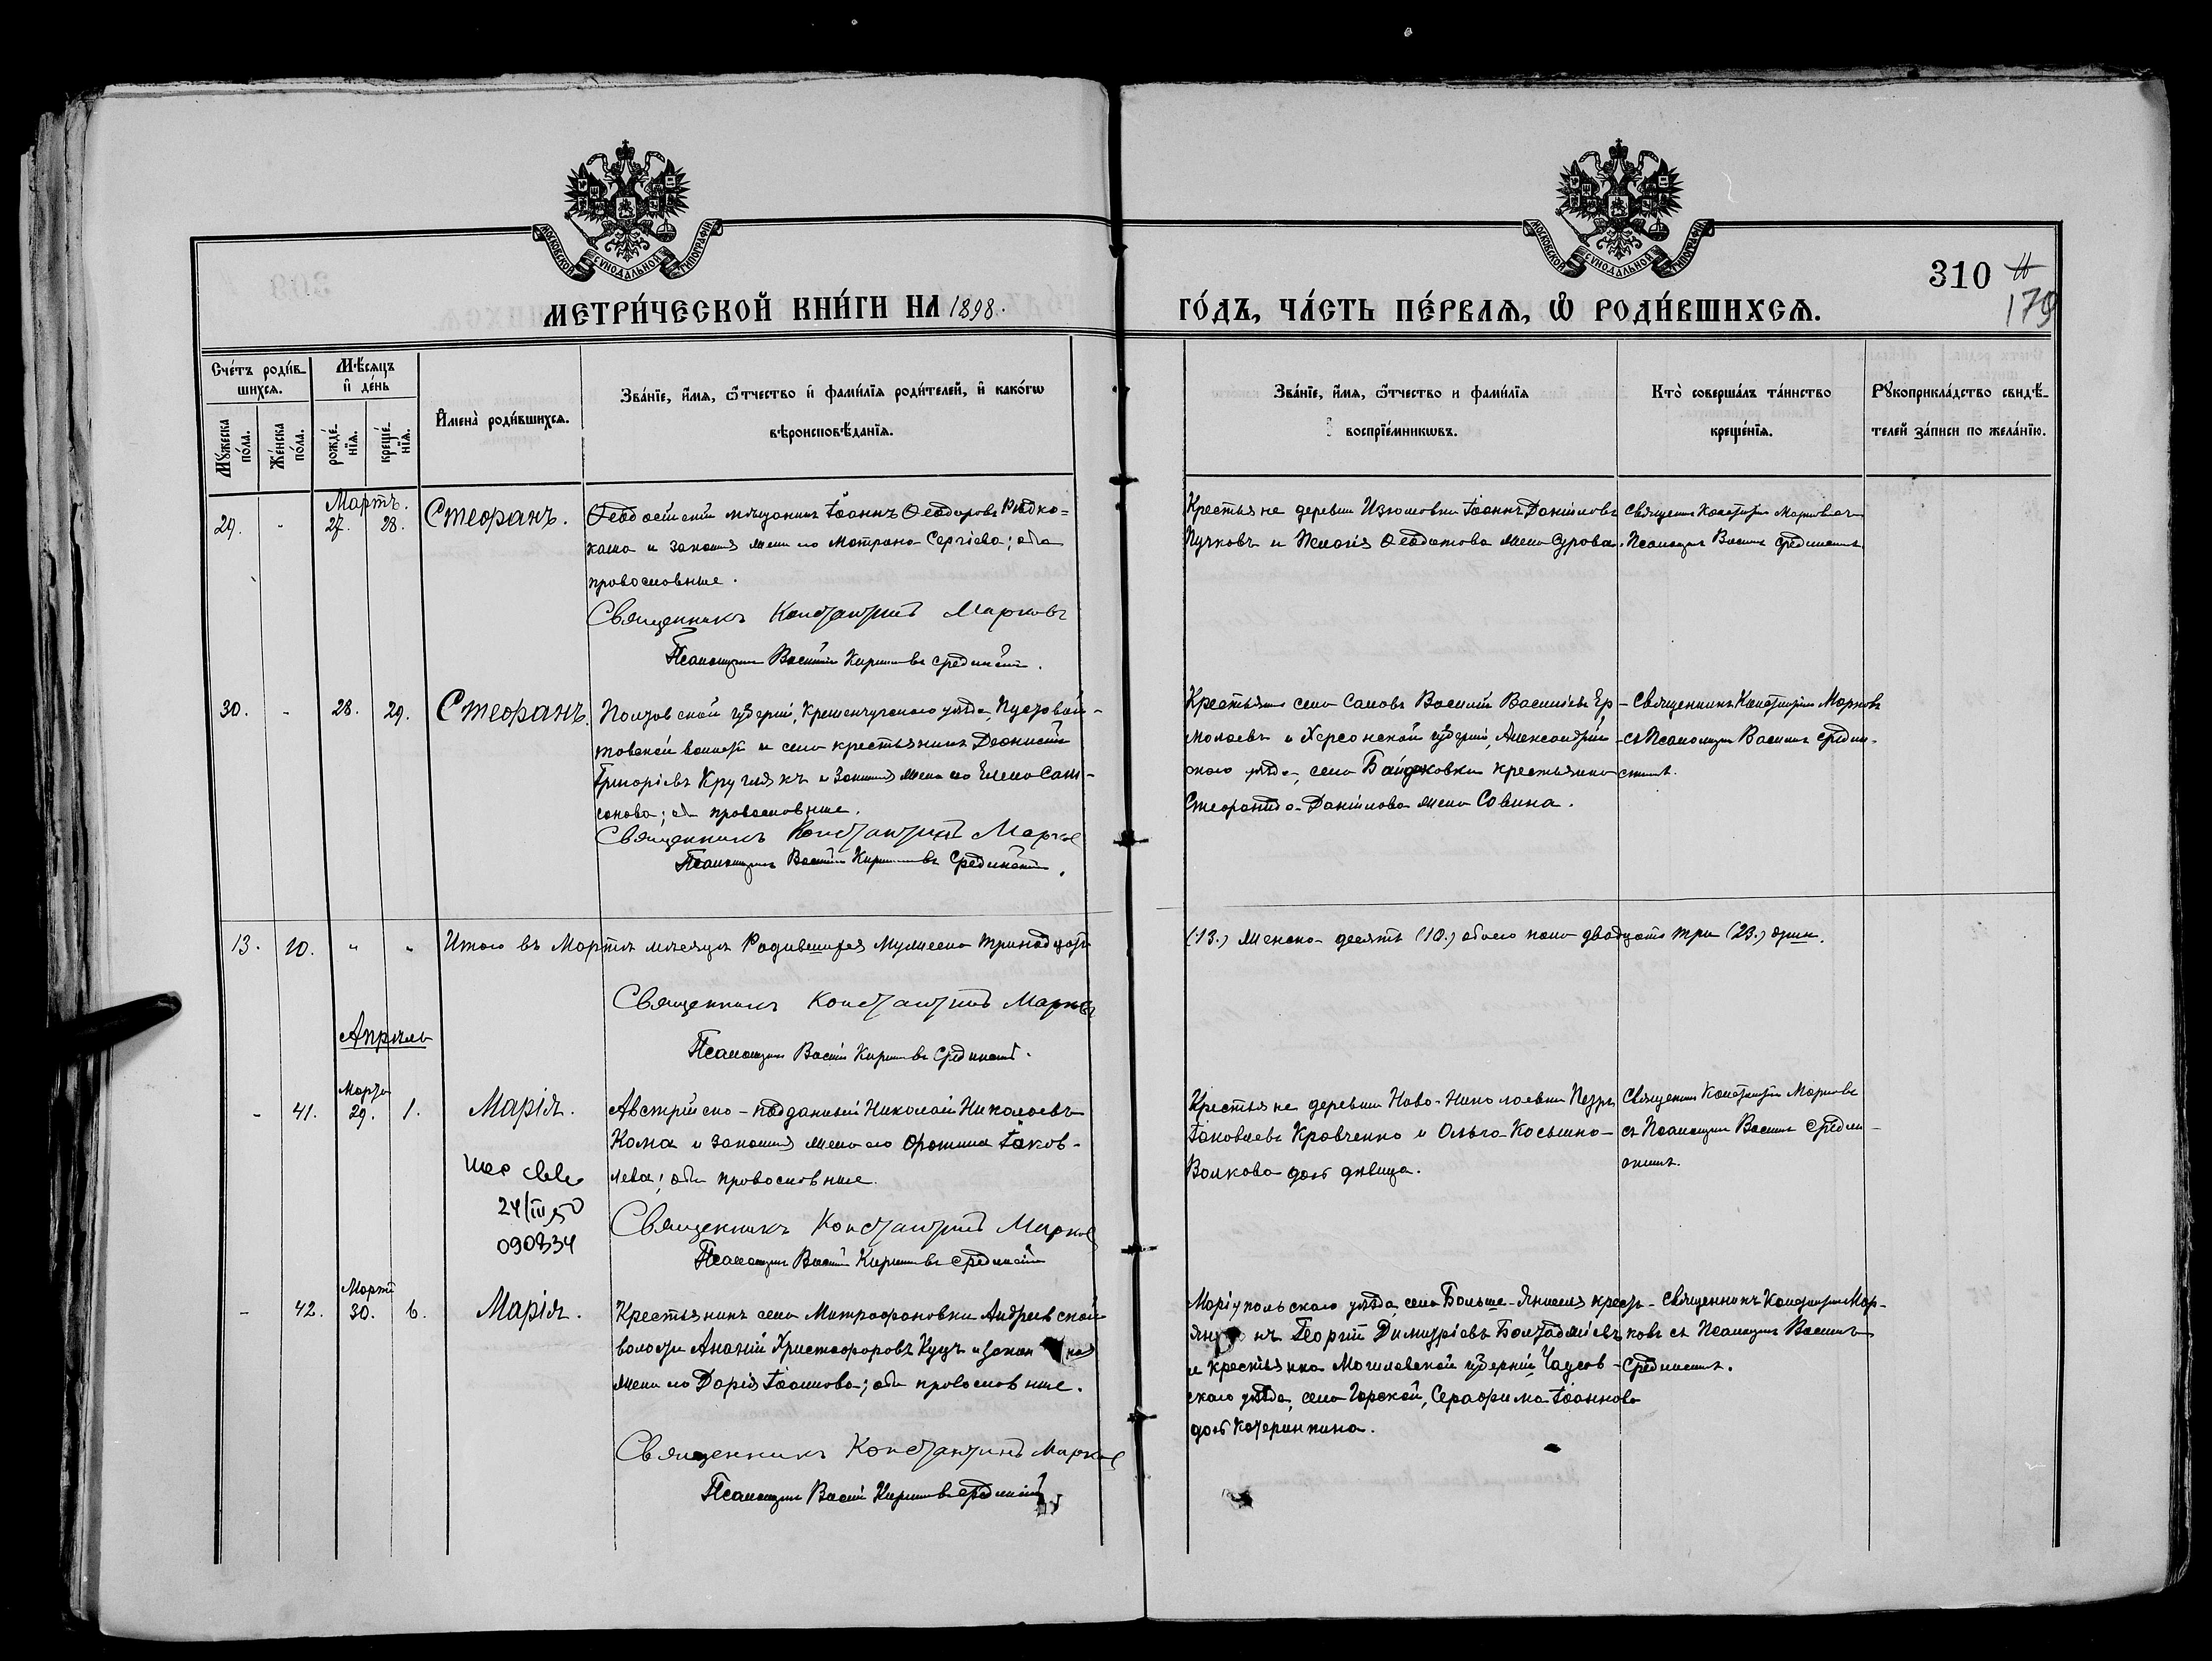 МОСКОВСКОЙ СѴНОДАЛЬНОЙ ТИПОГРАФІИ
МОСКОВСКОЙ СѴНОДАЛЬНОЙ ТИПОГРАФІИ
310
179
МЕТРИ́ЧЕСКОЙ КНИ́ГИ НА 1898.
ГО́ДЪ, ЧА́СТЬ ПЕ́РВАѦ, Ѡ҆ РОДИ́ВШИХСѦ.
Сче́тъ роди́в-
шихсѧ.
Мѣ́сѧцъ
и҆ де́нь
Мꙋ́жеска по́ла.
Же́нска по́ла.
рожде́-нїѧ.
креще́-нїѧ.
И҆мена̀ роди́вшихсѧ.
Зва́нїе, и҆́мѧ, ѻ҆́тчество и҆ фами́лїѧ роди́телей, и҆ како́гѡ
вѣроисповѣ́данїѧ.
Зва́нїе, и҆́мѧ, ѻ҆́тчество и фами́лїѧ
воспрїе́мникѡвъ.
Кто̀ соверша́лъ та́инство
креще́нїѧ.
Рꙋкоприкла́дство свидѣ́-
телей за́писи по жела́нїю.
Мартъ.
29. - 27. 28. Стефанъ. Ѳеодосійскій мѣщанинъ Іоаннъ Ѳеодоровъ Рѣдко-
каша и законная жена его Матрона Сергіева; оба
православные.
Священникъ Константинъ Марковъ
Псаломщикъ Василій Срединскій.
Крестьяне деревни Изюмовки Іоаннъ Даніиловъ
Пучковъ и Ѳеодотова жена Сурова.
Священникъ Константинъ Марковъ съ
Псаломщикомъ Василіемъ Срединскимъ
30. - 28. 29. Стефанъ. Полтавской губерніи, Кременчугскаго уѣзда, Пустовой-
товской волости и села крестьянинъ Діонисій
Григорьевъ Круглякъ и законная жена его Елена Сам-
сонова; оба православные.
Священникъ Константинъ Марковъ
Псаломщикъ Василій Срединскій.
Крестьяне села Саловъ Василій Васильевъ Ер-
молаевъ и Херсонской губерніи, Александрій-
скаго уѣзда, села крестьянка
Стефанида Даніилова жена Савина.
Священникъ Константинъ Марковъ
съ Псаломщикомъ Василіемъ Средин-
скимъ.
13. 10. " " Итого въ Мартѣ мѣсяцѣ Родившихся мужеска тринадцать
(13.) женска десять (10.) обоего пола двадцать три (23.) душъ.
Священникъ Константинъ Марковъ
Псаломщикъ Василій Срединскій.
Апрѣль
Марта
- 41. 29. 1. Марія. Австрійско-подданный Николай Николаевъ
Кома и законная жена его Іаков-
лева; оба православные.
24/III 50
090834
Священникъ Константинъ Марковъ
Псаломщикъ Василій Срединскій
Крестьяне деревни Ново-Николаевки Петръ
Іаковлевъ Кравченко и Ольга Косьмина
Волкова дочь дѣвица.
Священникъ Константинъ Марковъ
съ Псаломщикомъ Василіемъ Средин-
скимъ.
Марта
- 42. 30. 6. Марія. Крестьянинъ села Митрофановки Андреевской
волости Ананій Христофоровъ Куцъ и законная
жена его Дарія Іоаннова; оба православные.
Священникъ Константинъ Марковъ
Псаломщикъ Василій Срединскій
Маріупольскаго уѣзда, села Больше-Янисоль кресть-
янинъ Георгій Димитріевъ
и крестьянка Могилевской губерніи, Чаусов-
скаго уѣзда, села Горской, Серафима Іоаннова
дочь Катеринкина.
Священникъ Константинъ Мар-
ковъ съ Псаломщикомъ Василіемъ
Срединскимъ.